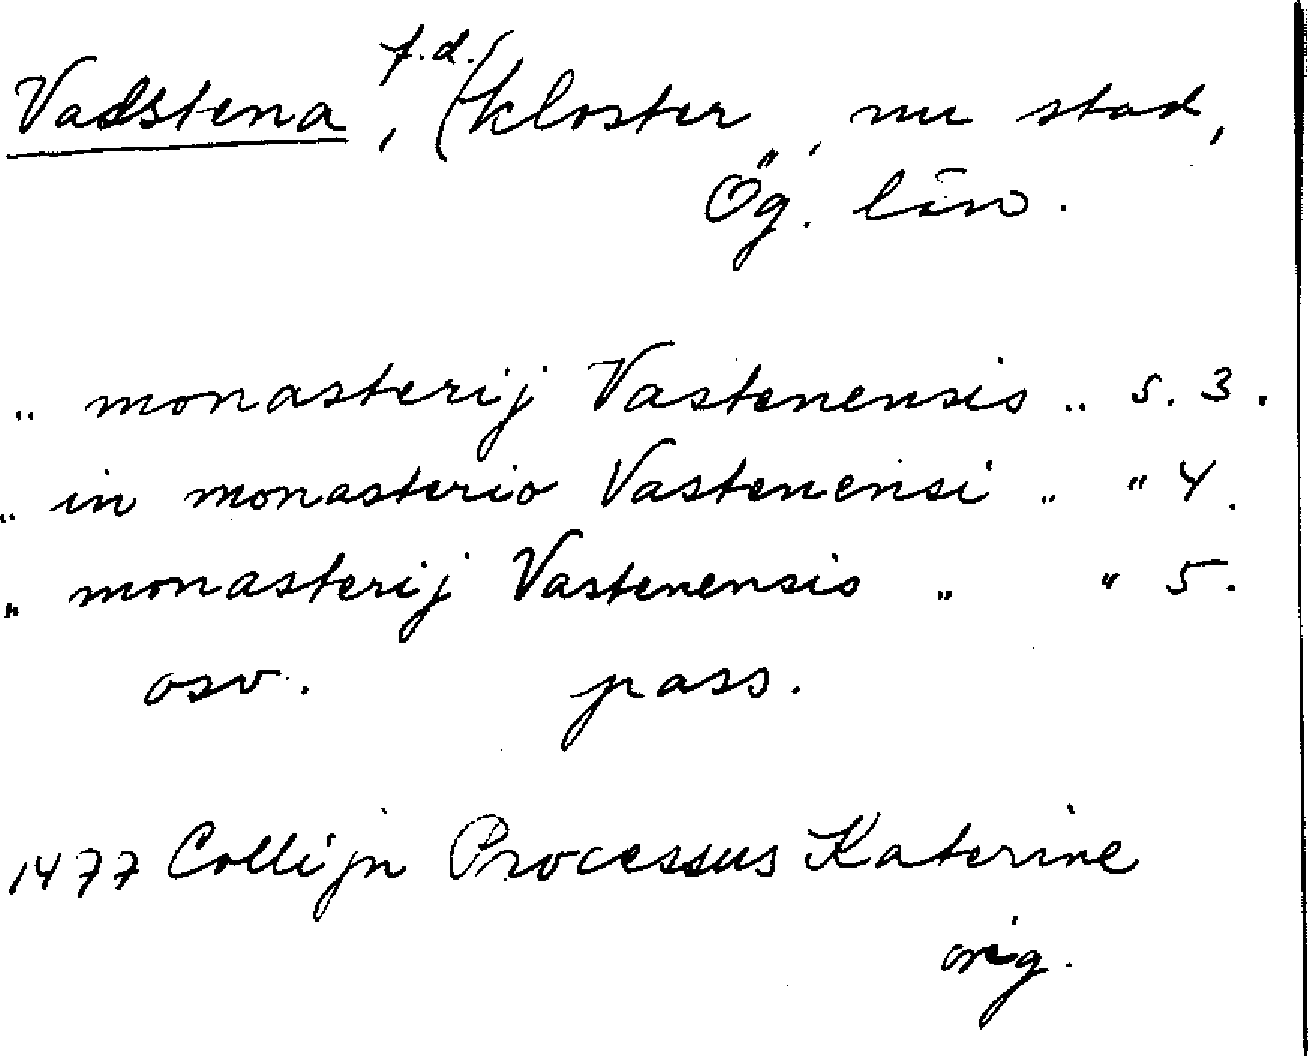 Vadstena, f.d. kloster, nu stad,
Ög. län.
.. monasterij Vastenensis .. s. 3.
.. in monasterio Vastenensi .. " 4.
.. monasterij Vastenensis .. " 5.
osv. pass.
1477 Collijn Processus Katerine
orig.